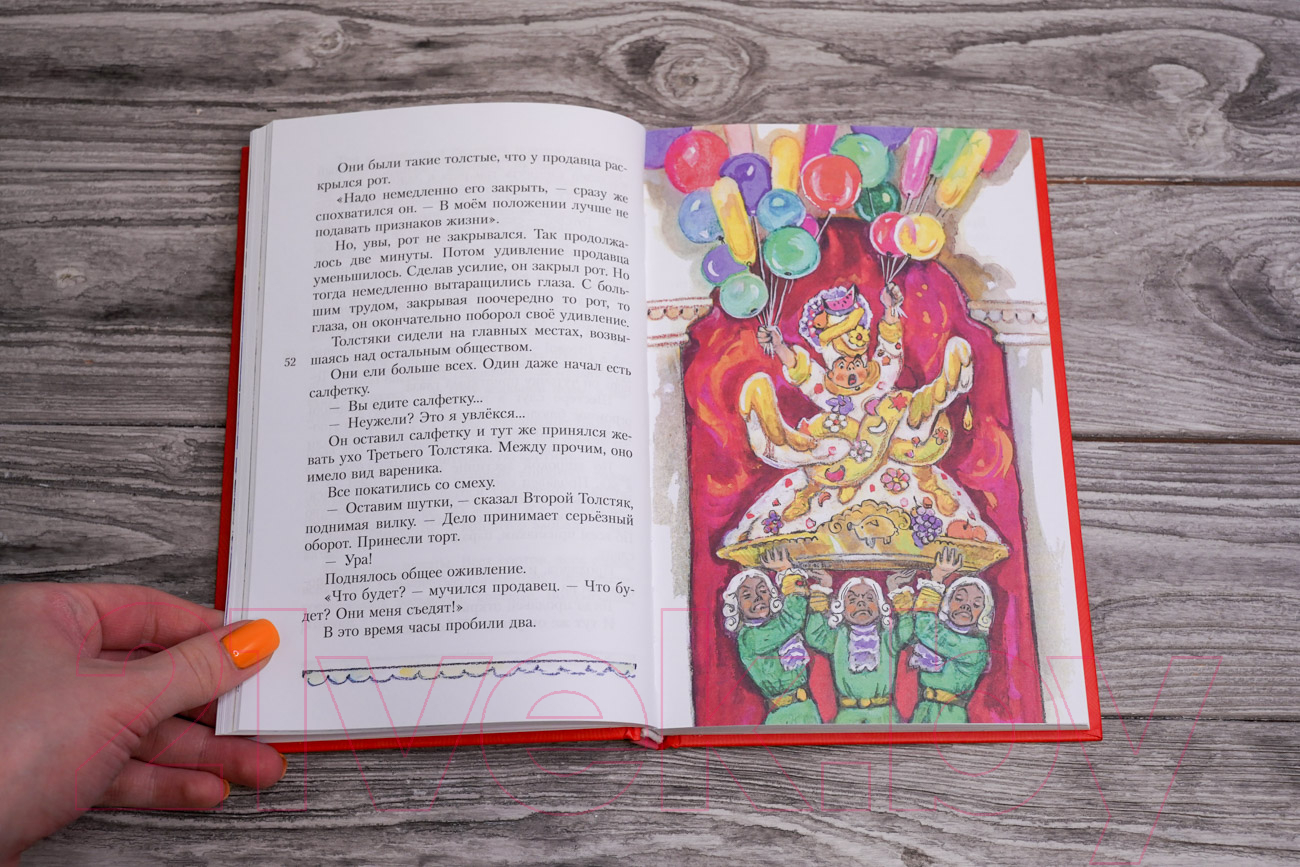 Они были такие толстые, что у продавца рас-
крылся рот.
«Надо немедленно его закрыть, — сразу же
спохватился он. — В моём положении лучше не
подавать признаков жизни».
Но, увы, рот не закрывался. Так продолжа-
лось две минуты. Потом удивление продавца
уменьшилось. Сделав усилие, он закрыл рот. Но
тогда немедленно вытаращились глаза. С боль-
шим трудом, закрывая поочередно то рот, то
глаза, он окончательно поборол своё удивление.
Толстяки сидели на главных местах, возвы-
52
шаясь над остальным обществом.
Они ели больше всех. Один даже начал есть
салфетку.
— Вы едите салфетку...
— Неужели? Это я увлёкся...
Он оставил салфетку и тут же принялся же-
вать ухо Третьего Толстяка. Между прочим, оно
имело вид вареника.
Все покатились со смеху.
— Оставим шутки, — сказал Второй Толстяк,
поднимая вилку. — Дело принимает серьёзный
оборот. Принесли торт.
— Ура!
Поднялось общее оживление.
«Что будет? — мучился продавец. — Что бу-
дет? Они меня съедят!»
В это время часы пробили два.
21vek.by